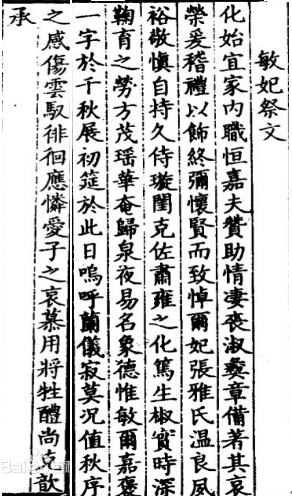 敏妃祭文
化始宜家內職恒嘉夫贊助情淒喪淑懿章備著其哀
榮爰稽禮以飾終彌懷賢而致悼爾妃張雅氏溫良夙
裕敬慎自持久侍璇閨克佐肅雍之化篤生椒實時深
鞠育之勞方茂瑤華奄歸泉夜易名象德惟敏爾嘉褒
一字於千秋展初筵於此日嗚呼蘭儀寂莫況值秋序
之感傷雲馭徘徊應憐愛子之哀慕用將牲醴尚克歆
承